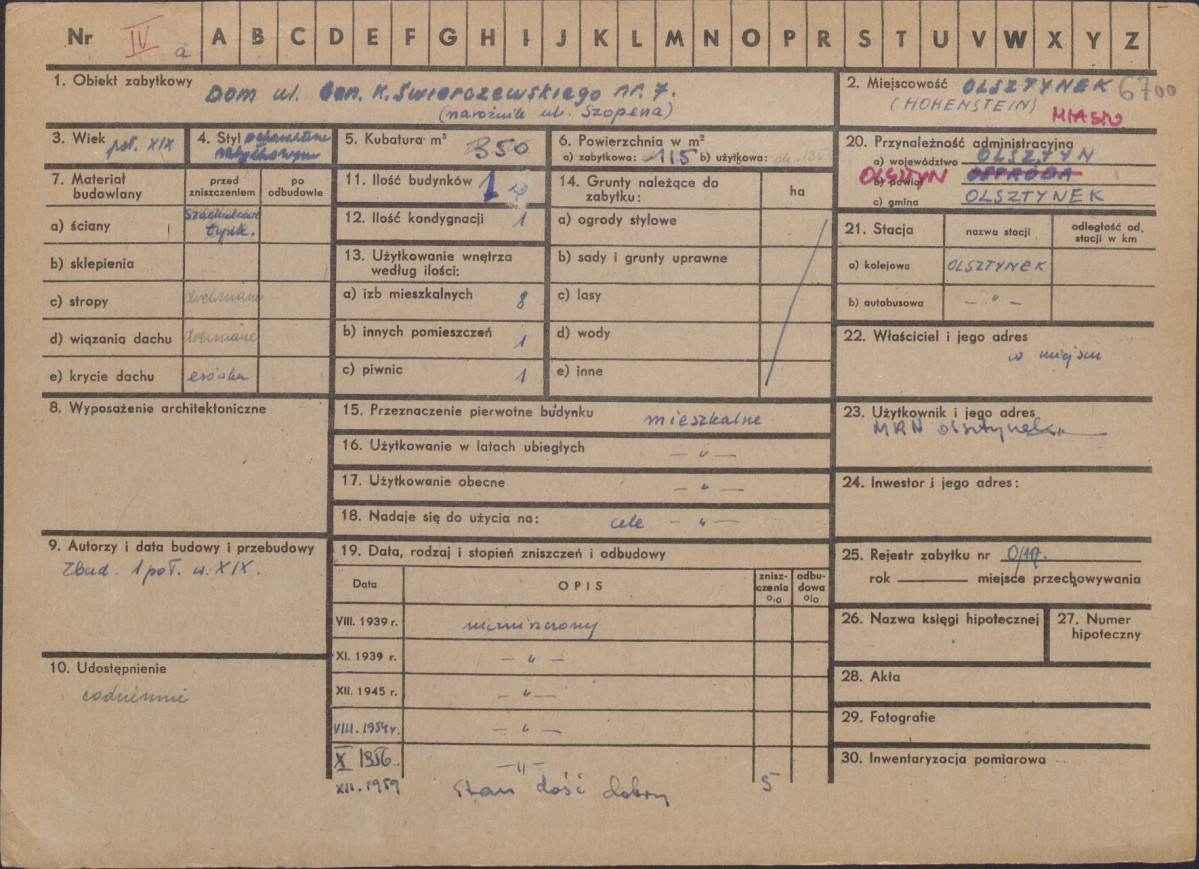 Nr IV a A B C D E F G H I J K L M N O P R S T U V W X Y Z
1. Obiekt zabytkowy
Dom ul. Gen. K. Świerczewskiego nr. 7.
(narożnik ul. Szopena)
2. Miejscowość OLSZTYNEK 6700
(HOHENSTEIN) MIASTO
3. Wiek poł. XIX
4. Styl
5. Kubatura m³ 350
6. Powierzchnia w m²
a) zabytkowa: 115 b) użytkowa: ok. 135
20. Przynależność administracyjna
a) województwo OLSZTYN
b) powiat OLSZTYN OSTRÓDA
c) gmina OLSZTYNEK
7. Materiał budowlany
przed zniszczeniem
po odbudowie
a) ściany
tynk.
b) sklepienia
c) stropy drewniane
d) wiązania dachu drewniane
e) krycie dachu esówka
11. Ilość budynków 1
12. Ilość kondygnacji 1
13. Użytkowanie wnętrza
według ilości:
a) izb mieszkalnych 8
b) innych pomieszczeń 1
c) piwnic 1
14. Grunty należące do
zabytku:
ha
a) ogrody stylowe
b) sady i grunty uprawne
c) lasy
d) wody
e) inne
21. Stacja nazwa stacji odległość od stacji w km
a) kolejowa OLSZTYNEK
b) autobusowa – " –
22. Właściciel i jego adres
w miejscu
8. Wyposażenie architektoniczne
15. Przeznaczenie pierwotne budynku mieszkalne
16. Użytkowanie w latach ubiegłych – " –
17. Użytkowanie obecne – " –
18. Nadaje się do użycia na: cele – " –
23. Użytkownik i jego adres
MRN Olsztynek
24. Inwestor i jego adres:
9. Autorzy i data budowy i przebudowy
Zbud. 1 poł. w. XIX.
19. Data, rodzaj i stopień zniszczeń i odbudowy
Data OPIS zniszczenia o/o odbudowa o/o
VIII. 1939 r. niezniszczony
XI. 1939 r. – " –
XII. 1945 r. – " –
VIII. 1954 r. – " –
X 1956. – " –
XII. 1959 Stan dość dobry 5
10. Udostępnienie
codziennie
25. Rejestr zabytku nr O/17.
rok miejsce przechowywania
26. Nazwa księgi hipotecznej
27. Numer
hipoteczny
28. Akta
29. Fotografie
30. Inwentaryzacja pomiarowa